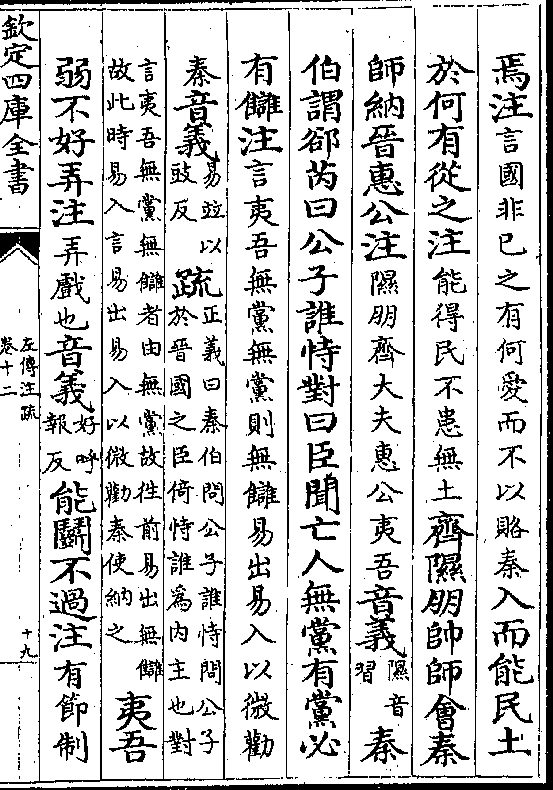 焉注言國非己之有何愛而不以賂秦入而能民土
於何有從之注能得民不患無土齊隰朋帥師會秦
師納晉惠公注隰朋齊大夫惠公夷吾音義隰音習秦
伯謂郤芮曰公子誰恃對曰臣聞亡人無黨有黨必
有讎注言夷吾無黨無黨則無讎易出易入以微勸
秦音義易竝以豉反疏正義曰秦伯問公子誰恃問公子於晉國之臣倚恃誰為内主也對
言夷吾無黨無讎者由無黨故徃前易出無讎故此時易入言易出易入以微勸秦使納之夷吾
弱不好弄注弄戲也音義好呼報反能鬬不過注有節制
欽定四庫全書
左傳注疏
卷十二
十九